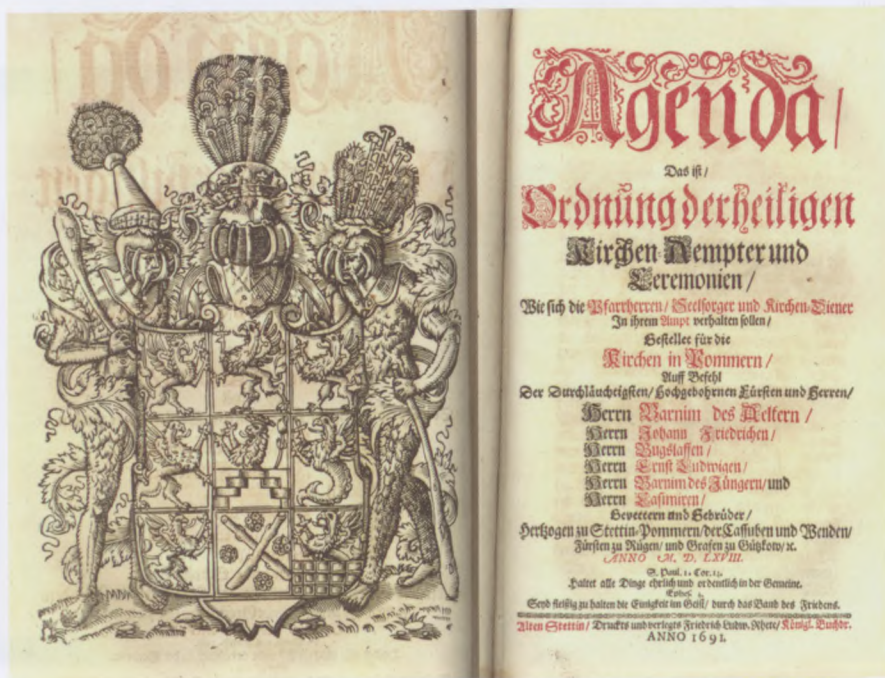 Agenda/
Das ist/
Ordnung der heiligen
Kirchen-Aempter und
Ceremonien/
Wie sich die Pfarrherren/ Seelsorger und Kirchen-Diener
In ihrem Ampt verhalten sollen/
Gestellet für die
Kirchen in Pommern/
Auff Befehl
Der Durchläuchtigsten/ Hochgebohrnen Fürsten und Herren/
Herrn Barnim des Aeltern/
Herrn Johann Friedrichen/
Herrn Bugslaffen/
Herrn Ernst Ludwigen/
Herrn Barnim des Jüngern/ und
Herrn Casimiren/
Gevettern und Gebrüder/
Hertzogen zu Stettin-Pommern/ der Cassuben und Wenden/
Fürsten zu Rügen/ und Grafen zu Gützkow/ ꝛc.
ANNO M. D. LXVIII.
S. Paul. 1. Cor.
Haltet alle Dinge ehrlich und ordentlich in der Gemeine.
Ephes.
Seyd fleißig zu halten die Einigkeit im Geist/ durch das Band des Friedens.
Alten Stettin/ Druckts und verlegts Friedrich Ludw. Rhete/ Königl. Buchdr.
ANNO 1691.